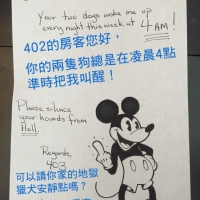 Your two dogs woke me up
every night this week at 4 AM!
402的房客您好，
你的兩隻狗總是在凌晨4點
準時把我叫醒！
Please silence
your hounds from
Hell.
Regards,
403
可以請你家的地獄
獵犬安靜點嗎？